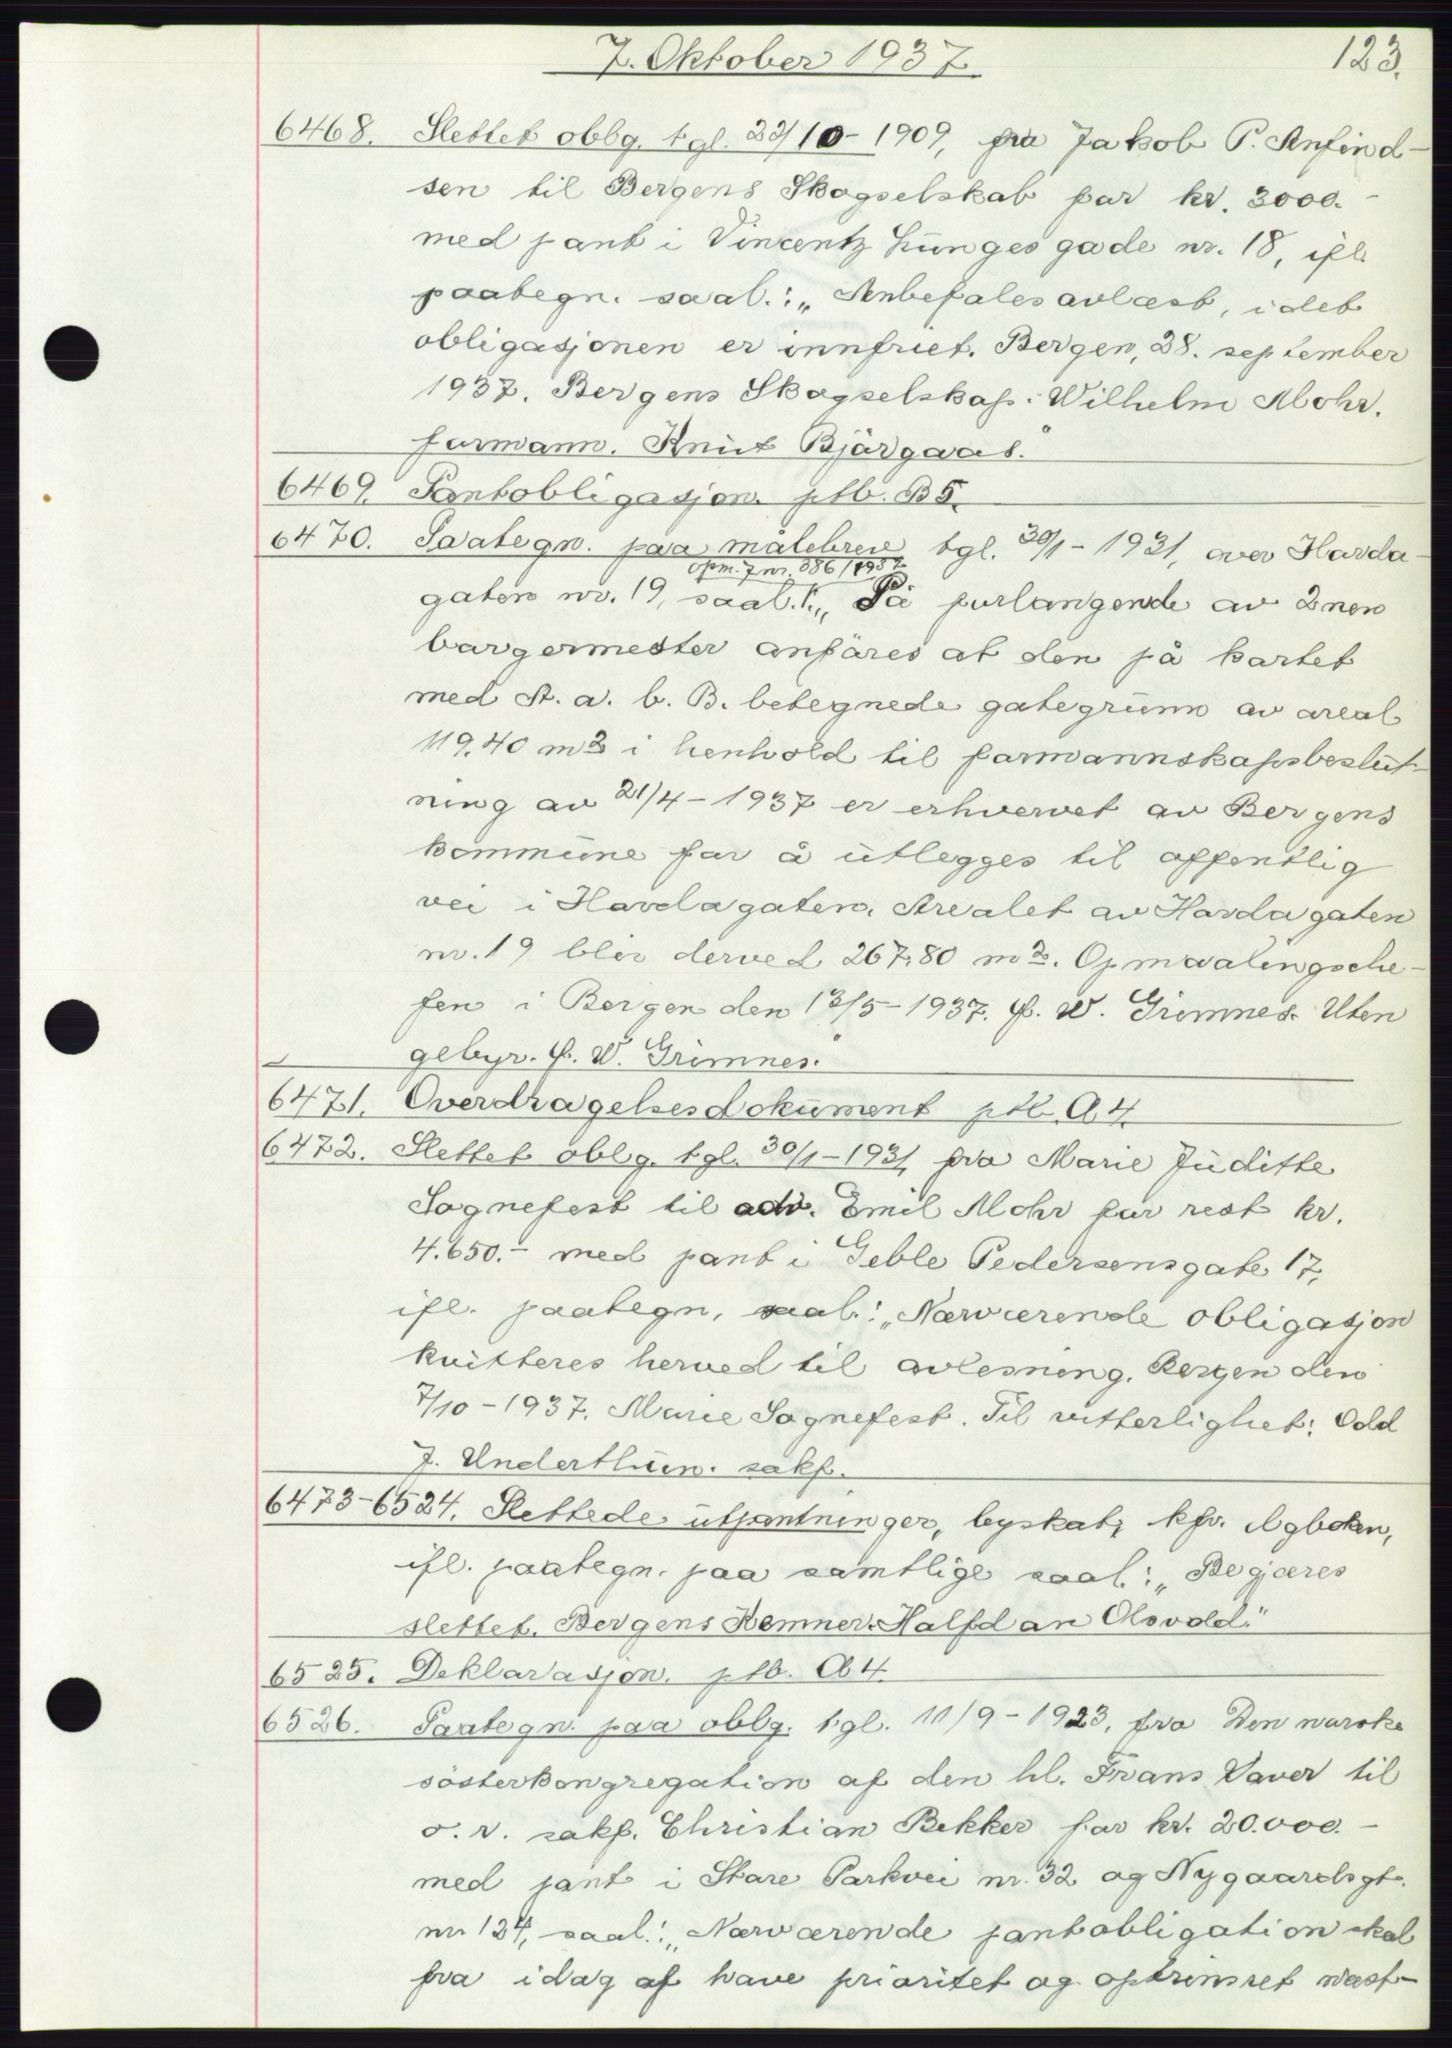 7. Oktober 1937
123.
6468. Slettet obbg. tgl. 22/10-1909, fra Jakob P. Anfind-
sen til Bergens Skogselskab for kr. 3000.-
med pant i Vincentz Lunges gade nr. 18, ifl.
paategn. saal.: „Anbefales avlæst, idet
obligasjonen er innfriet. Bergen, 28. september
1937. Bergens Skogselskap. Wilhelm Mohr.
formann. Knut Bjørgaas."
6469. Pantobligasjon. ptb. B5.
6470. Paategn. paa målebrev tgl. 30/1-1931, over Harda-
opm. Jnr. 386/1937
gaten nr. 19, saal.: „På forlangende av 2nen
borgermester anføres at den på kartet
med St. a. b. B. betegnede gategrunn av areal
119.40 m2 i henhold til formannskapsbeslut-
ning av 21/4-1937 er erhvervet av Bergens
kommune for å utlegges til offentlig
vei i Hardagaten. Arealet av Hardagaten
nr. 19 blir derved 267.80 m2. Opmaalingsche-
fen i Bergen den 13/5-1937. F. W. Grimnes. Uten
gebyr. F. W. Grimnes."
6471. Overdragelsesdokument ptb. A4.
6472. Slettet oblg. tgl. 30/1-1931, fra Marie Juditte
Sognefest til adv. Emil Mohr for rest kr.
4.650.- med pant i Geble Pedersensgate 17,
ifl. paategn. saal.: „Nærværende obligasjon
kvitteres herved til avlesning. Bergen den
7/10-1937. Marie Sognefest. Til vitterlighet: Odd
J. Underthun. sakf.
6473-6524. Slettede utpantninger, byskat, kfr. dgboken,
ifl. paategn. paa samtlige saal.: „Begjæres
slettet. Bergens Kemner. Halfdan Olsvold."
6525. Deklarasjon. ptb. A4.
6526. Paategn. paa oblg. tgl. 11/9-1923, fra Den norske
søsterkongregation af den hl. Frans Xaver til
o.r. sakf. Christian Bekker for kr. 20.000.-
med pant i Store Parkvei nr. 32 og Nygaardsgt.
nr. 124, saal.: „Nærværende pantobligation skal
fra idag af have prioritet og optrinsret næst-